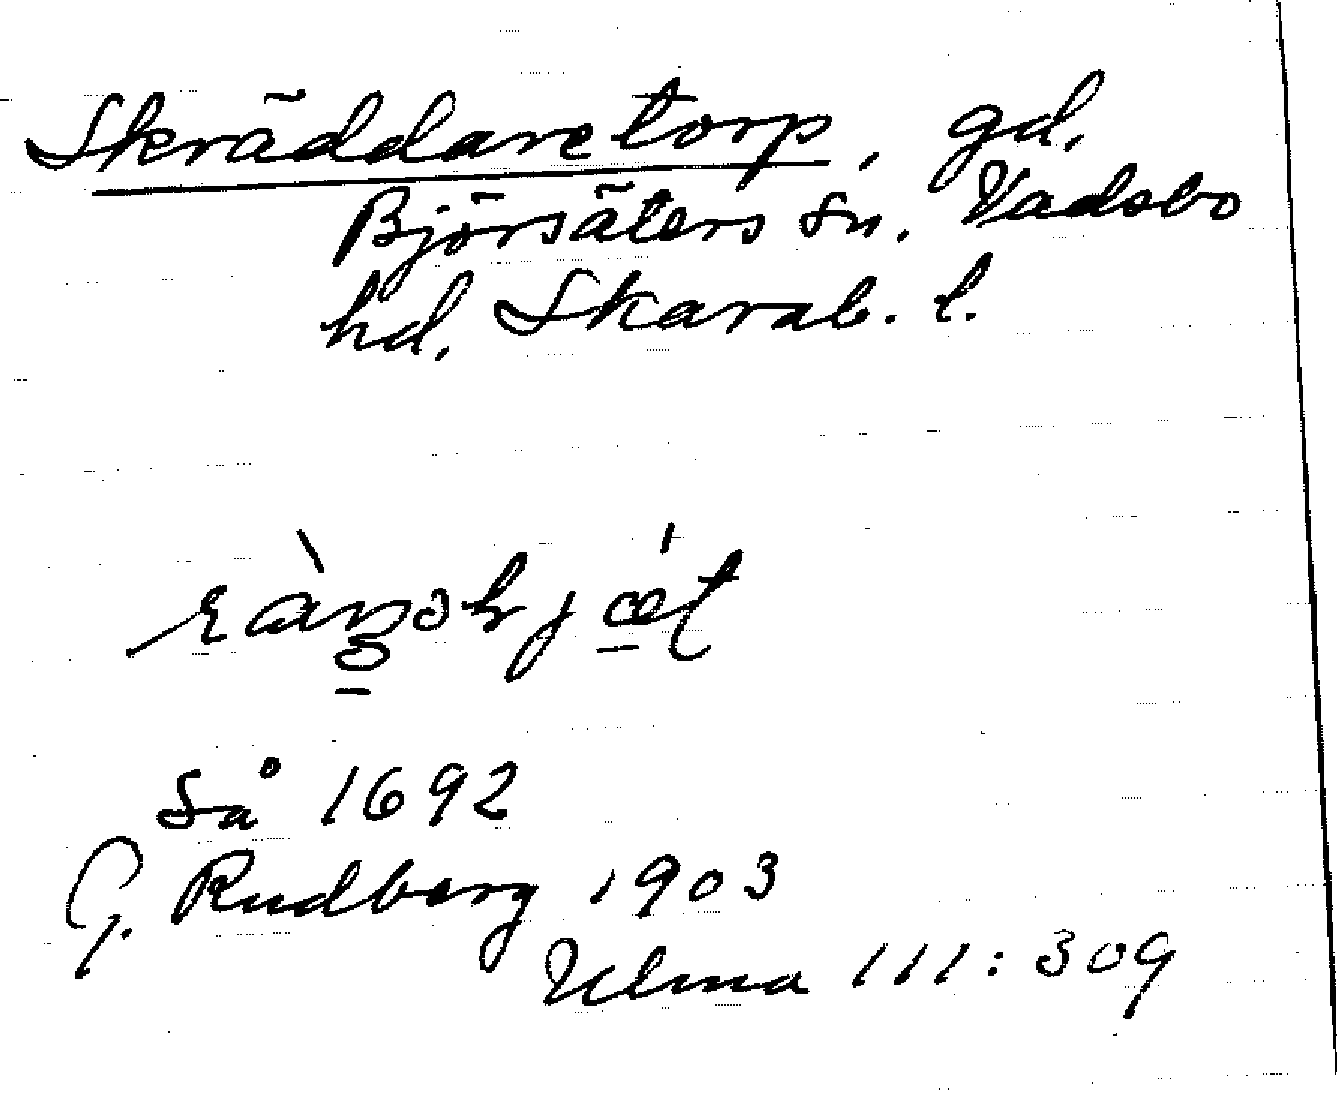 Skräddaretorp, gd.
Björsäters sn. Vadsbo
hd. Skarab. l.
Så 1692
G. Rudberg 1903
Ulma 111:309